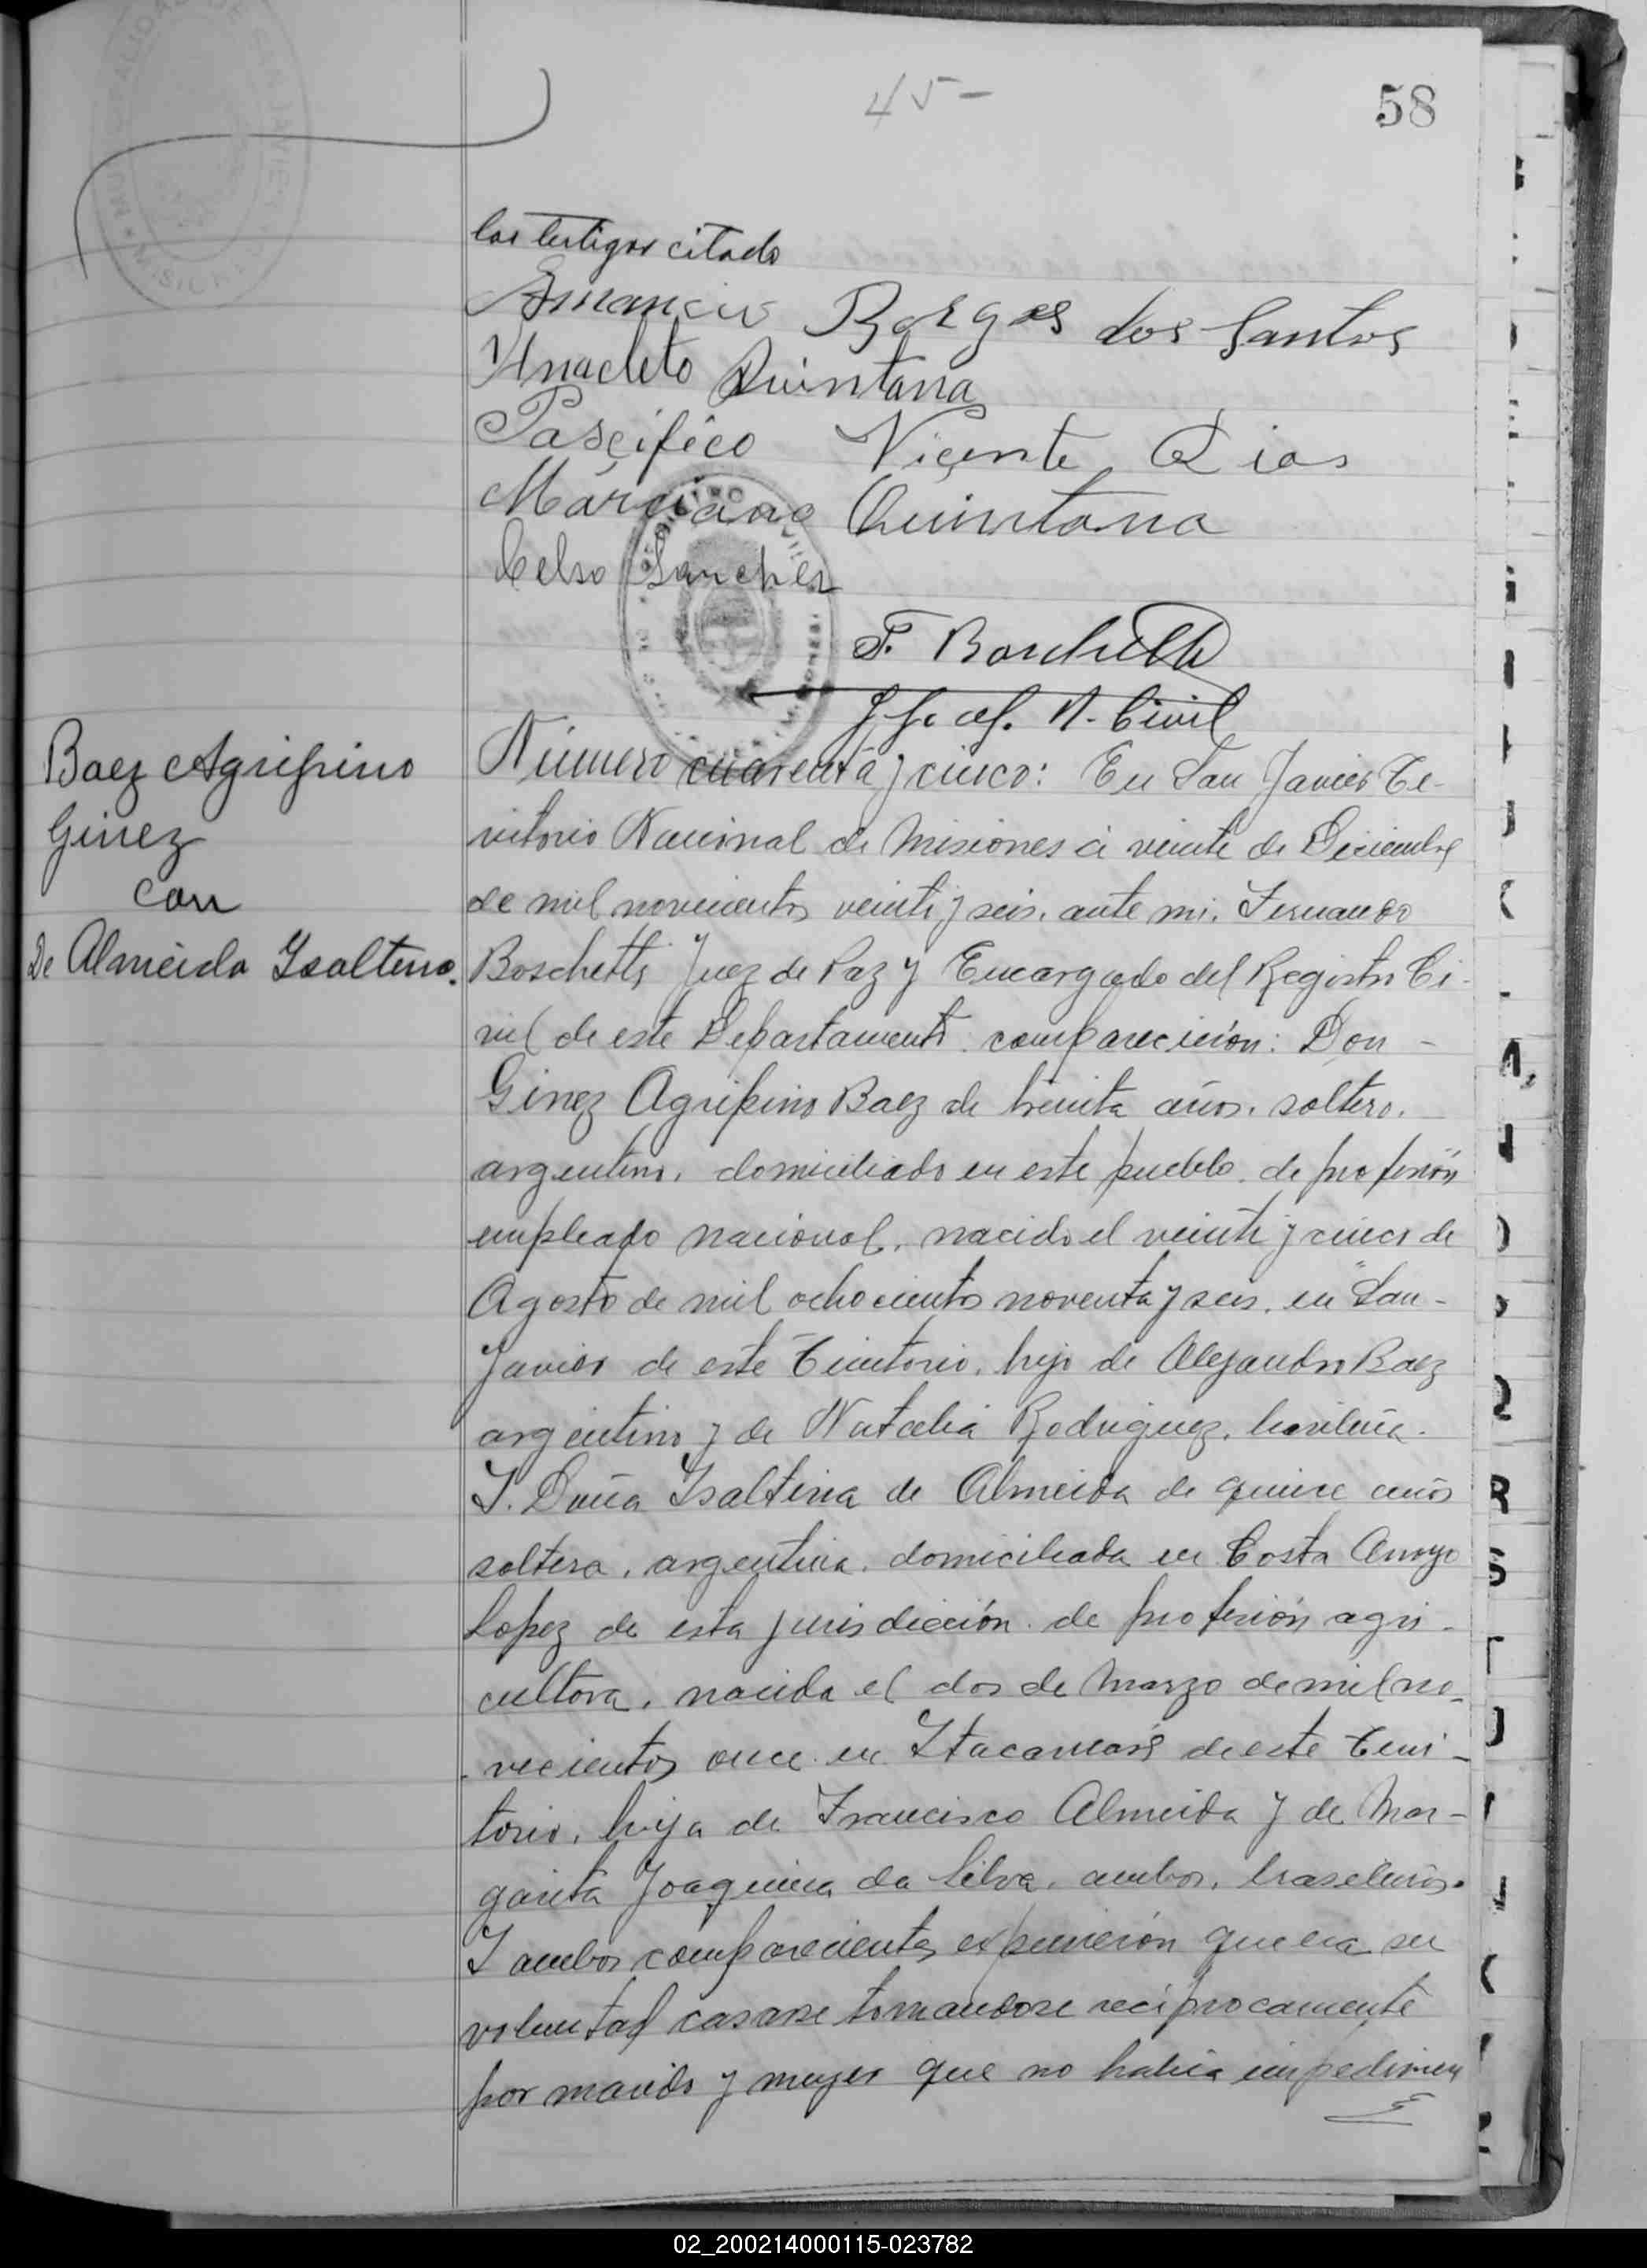 45-
58
los testigos citado
Amancio Borges dos Santos
Anacleto Quintana
Pascifico Vicente Rios
Marciano Quintana
Celso Sanchez
F. Boschetti
J. P. R. Civil
Baez Agripino
Ginez
con
De Almeida Isaltina.
Número cuarenta y cinco: En San Javier Te-
rritorio Nacional de Misiones á veinte de Diciembre
de mil novecientos veinti y seis, ante mi, Fernando
Boschetti Juez de Paz y Encargado del Registro Ci-
vil de este Departamento comparecieron: Don -
Ginez Agripino Baez de treinta años, soltero,
argentino, domiciliado en este pueblo, de profesión
empleado nacional, nacido el veinti y cinco de
Agosto de mil ochocientos noventa y seis, en San-
Javier de este Territorio, hijo de Alejandro Baez
argentino y de Natalia Rodriguez, brasileña.
Y. Doña Isaltina de Almeida de quince años
soltera, argentina, domiciliada en Costa Arroyo
Lopez de esta jurisdicción de profesión agri-
cultora, nacida el dos de Marzo de mil no-
vecientos once en Itacaruaré de este Terri-
torio, hija de Francisco Almeida y de Mar-
garita Joaquina da Silva, ambos, brasileños.
Y ambos comparecientes expusieron que era su
voluntad casarse tomandose recíprocamente
por marido y mujer que no había impedimen
02_200214000115-023782